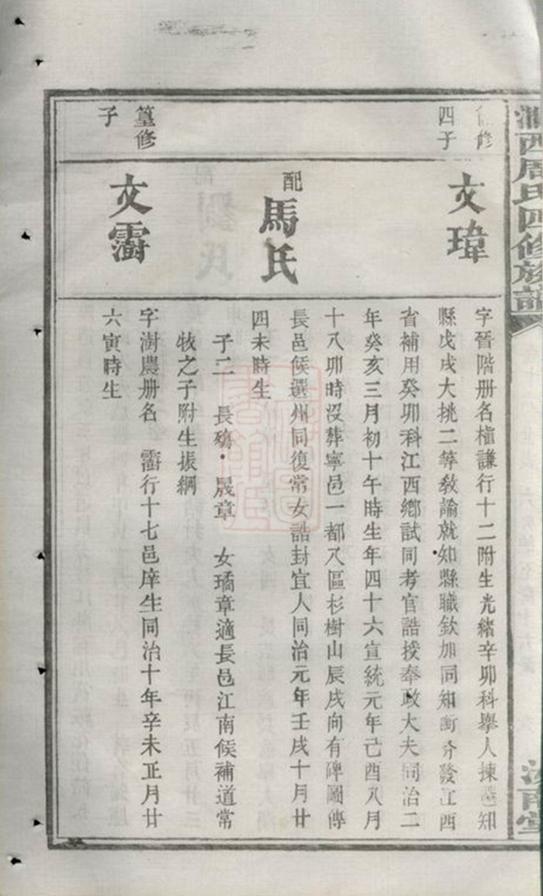 溈西周氏四修族譜
汝南堂
修
四子
文瑋
字晉階册名權謙行十二附生光緒辛卯科舉人揀選知
縣戊戌大挑二等敎諭就知縣職欽加同知銜分發江西
省補用癸卯科江西鄉試同考官誥授奉政大夫同治二
年癸亥三月初十午時生年四十六宣統元年己酉八月
十八卯時沒葬寧邑一都八區杉樹山辰戌向有碑圖傳
配
馬氏
長邑候選州同復常女誥封宜人同治元年壬戌十月廿
四未時生
子二 長殤 晟章 女璚章適長邑江南候補道常
牧之子附生振綱
篁修
子
文霌
字澍農册名 霌行十七邑庠生同治十年辛未正月廿
六寅時生